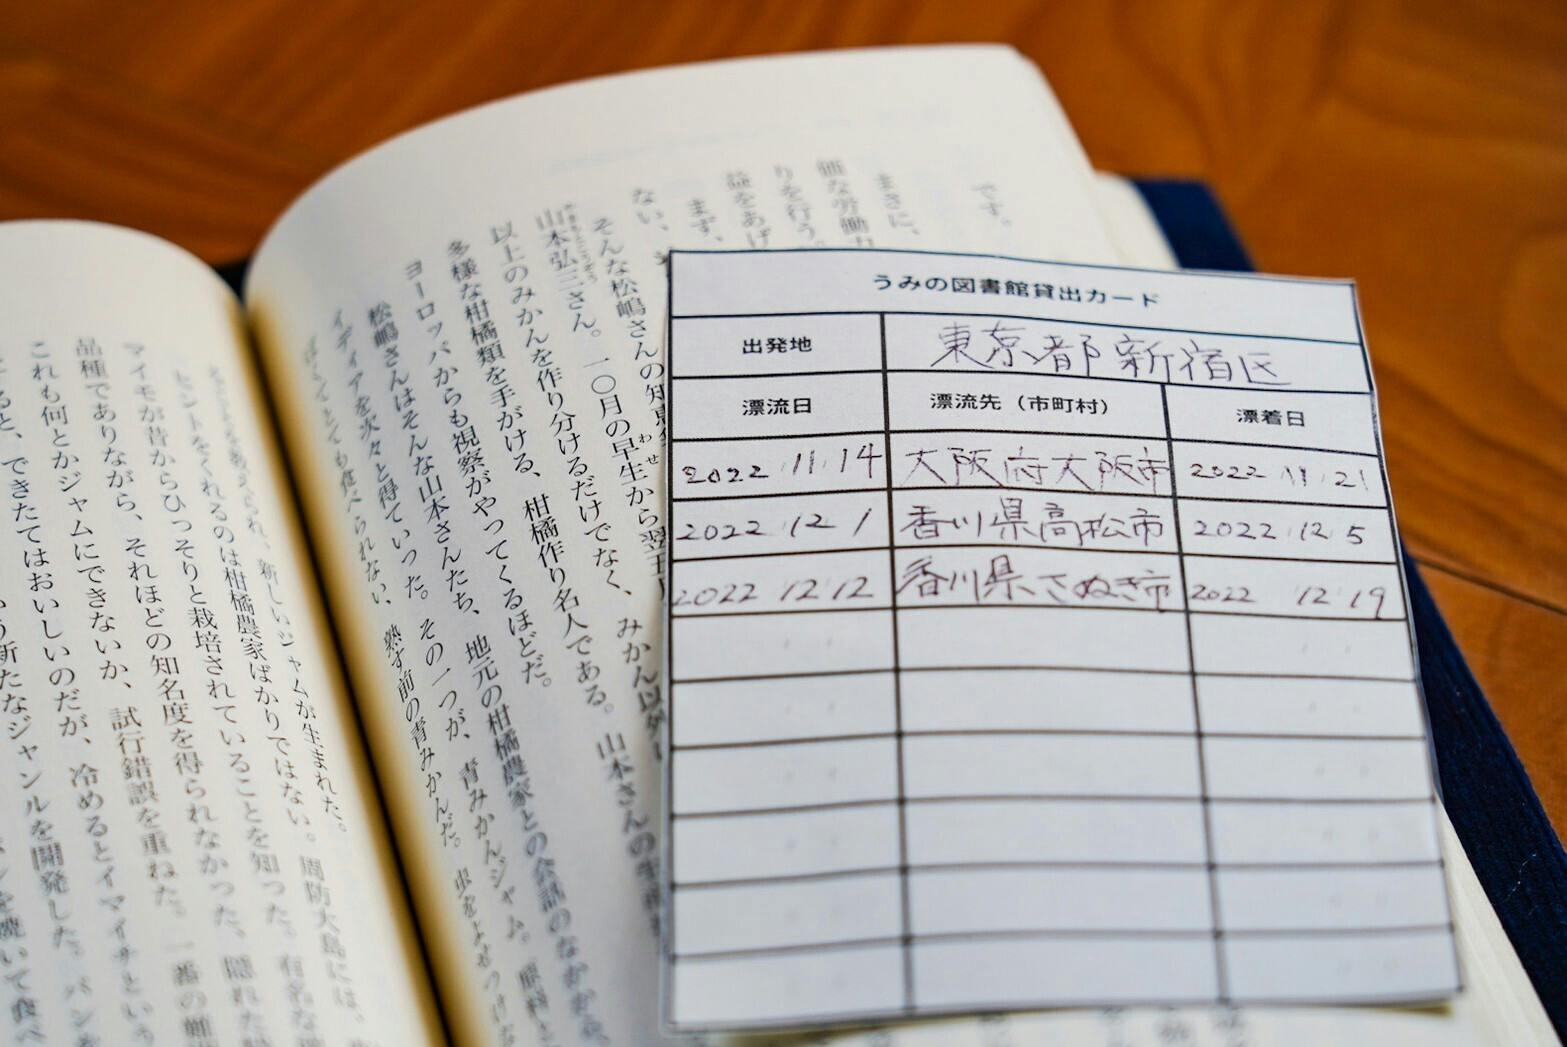 うみの図書館貸出カード
出発地 東京都新宿区
漂流日 漂流先（市町村） 漂着日
2022 11 14 大阪府大阪市 2022 11 21
2022 12 1 香川県高松市 2022 12 5
2022 12 12 香川県さぬき市 2022 12 19
です。
まさに、
価な労働力
りを行う。
益をあげ
まず、
ない、
そんな松嶋さんの知恵
山本弘三さん。一〇月の早生から翌五月
やまもとこうぞう
わせ
以上のみかんを作り分けるだけでなく、みかん以外
多様な柑橘類を手がける、柑橘作り名人である。山本さんの
ヨーロッパからも視察がやってくるほどだ。
松嶋さんはそんな山本さんたち、地元の柑橘農家との会話のなかか
イディアを次々と得ていった。その一つが、青みかんジャム。原料と
ぱくてとても食べられない、熟す前の青みかんだ。
られ、新しいジャムが生まれた。
ヒントをくれるのは柑橘農家ばかりではない。周防大島には、有名な
マイモが昔からひっそりと栽培されていることを知った。隠れた
品種でありながら、それほどの知名度を得られなかった。一番の難
これも何とかジャムにできないか、試行錯誤を重ねた。
ると、できたてはおいしいのだが、冷めるとイマイチという
新たなジャンルを開発した。パンを
を焼いて食べ